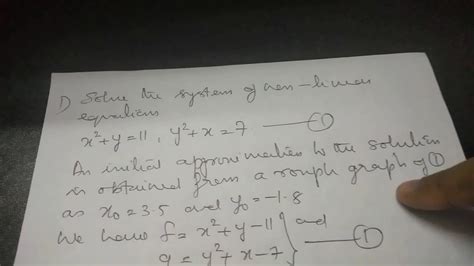 1) Solve the system of non-linear
equations
x²+y=11, y²+x=7 ——①
An initial approximation to the solution
is obtained from a rough graph of ①
as x₀=3.5 and y₀=-1.8
We have f=x²+y-11 } and
g=y²+x-7 } ——①